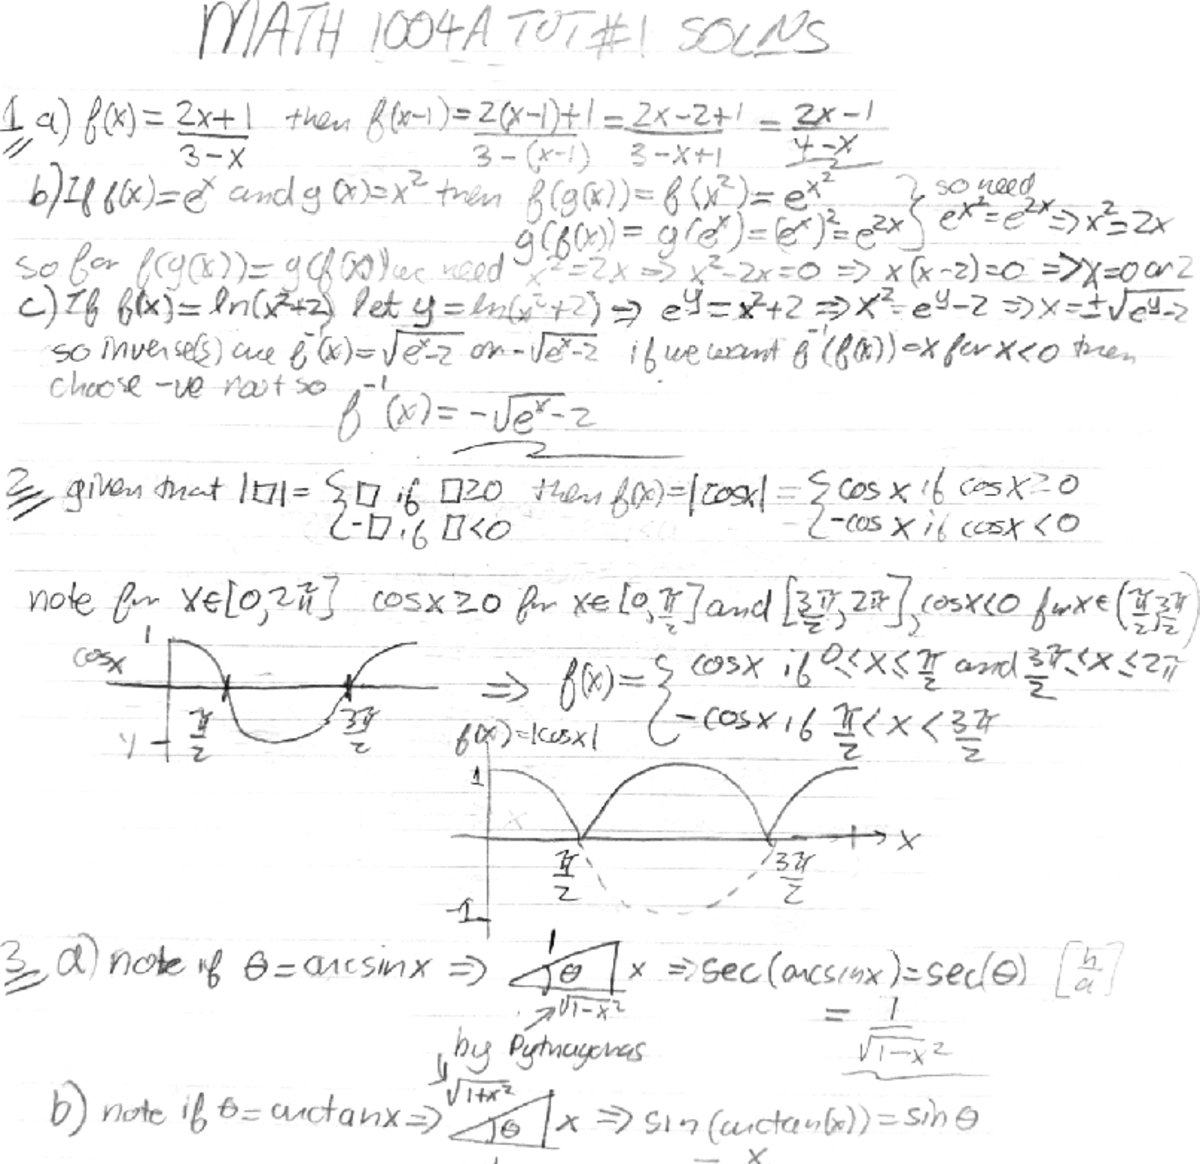 MATH 1004A TUT #1 SOLNS
1 a) f(x) = (2x+1)/(3-x) then f(x-1) = (2(x-1)+1)/(3-(x-1)) = (2x-2+1)/(3-x+1) = (2x-1)/(4-x)
b) If f(x)=e^x and g(x)=x^2 then f(g(x)) = f(x^2) = e^{x^2} } so need
g(f(x)) = g(e^x) = (e^x)^2 = e^{2x} } e^{x^2} = e^{2x} ⇒ x^2=2x
so for f(g(x)) = g(f(x)) we need x^2=2x ⇒ x^2-2x=0 ⇒ x(x-2)=0 ⇒ x=0 or 2
c) If f(x) = ln(x^2+2) let y = ln(x^2+2) ⇒ e^y = x^2+2 ⇒ x^2 = e^y-2 ⇒ x = ±√(e^y-2)
so inverse(s) are f^{-1}(x) = √(e^x-2) or -√(e^x-2) if we want f^{-1}(f(x)) = x for x<0 then
choose -ve root so
f^{-1}(x) = -√(e^x-2)
2 given that |□| = { □ if □≥0 then f(x) = |cosx| = { cos x if cos x ≥ 0
{ -□ if □<0 { -cos x if cosx < 0
note for x∈[0,2π] cosx≥0 for x∈[0,π/2] and [3π/2,2π], cosx<0 for x∈(π/2,3π/2)
1
cosx
π/2 3π/2
⇒ f(x) = { cosx if 0≤x≤π/2 and 3π/2≤x≤2π
{ -cosx if π/2<x<3π/2
f(x)=|cosx|
1
x
π/2 3π/2
-1
3 a) note if θ=arcsinx ⇒ 1 θ x √(1-x^2) ⇒ sec(arcsinx) = sec(θ) [h/a]
= 1/√(1-x^2)
by Pythagoras
b) note if θ=arctanx ⇒ √(1+x^2) θ x ⇒ sin(arctan(x)) = sinθ
= x